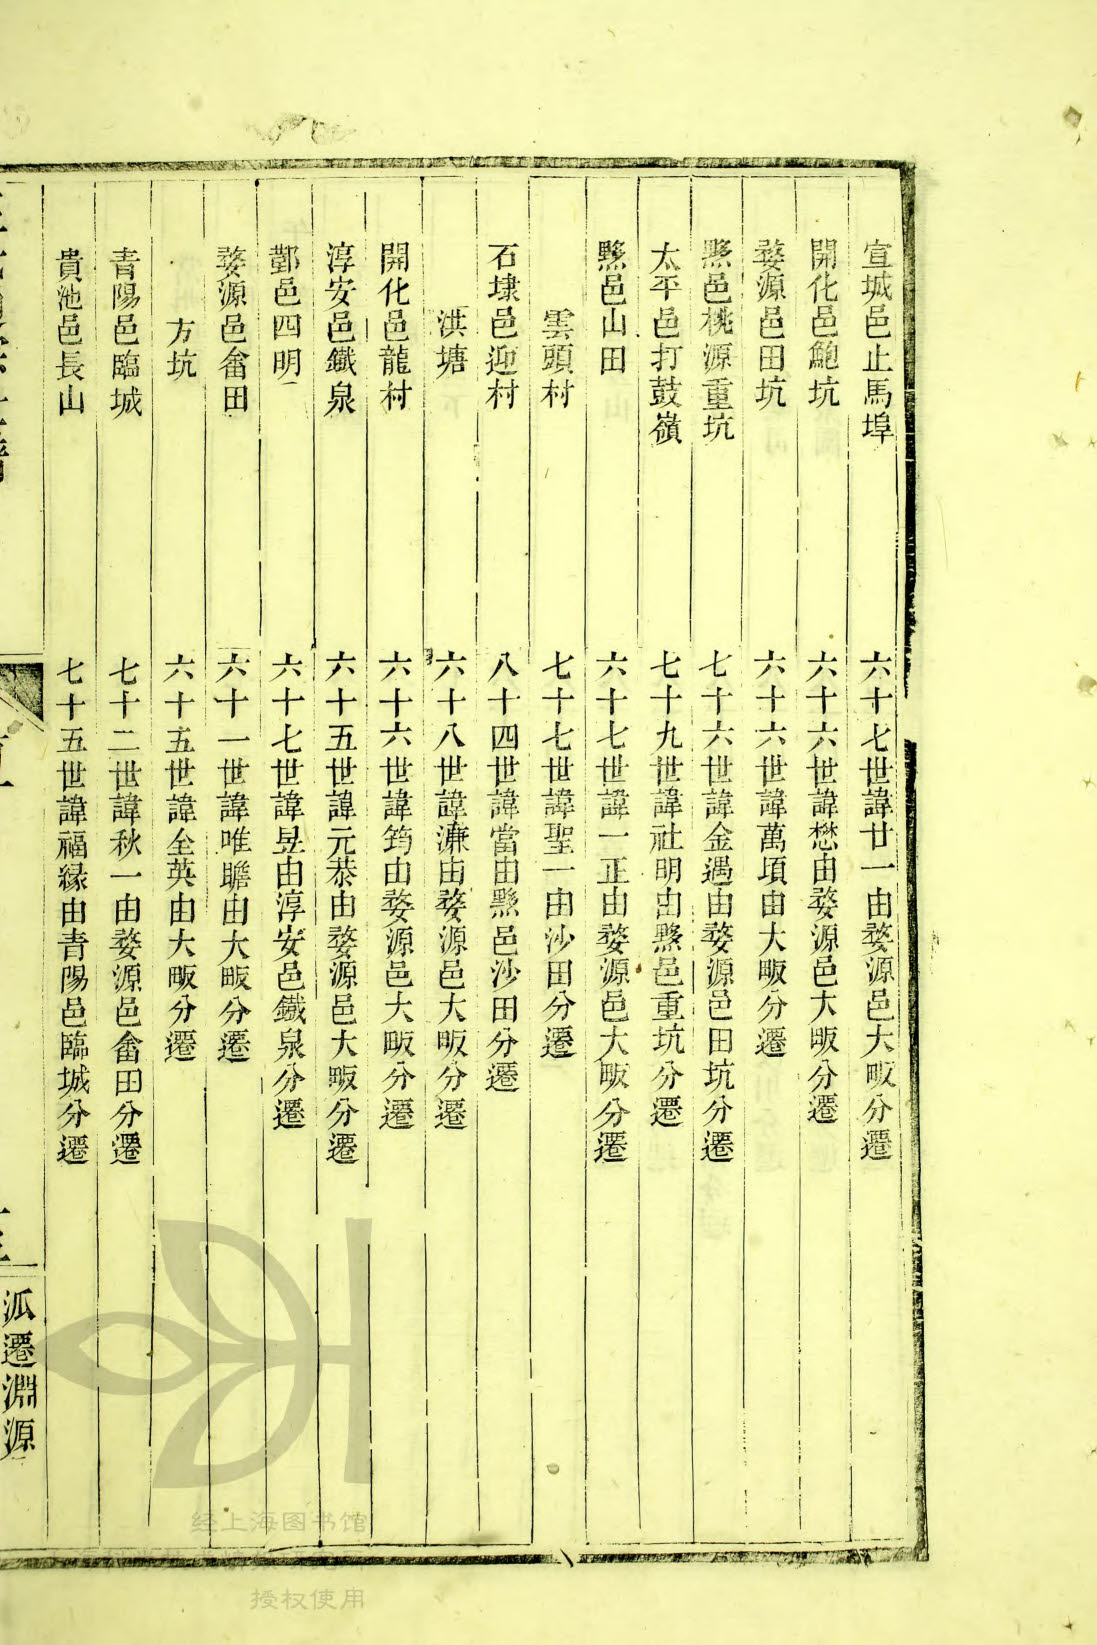 宣城邑止馬埠 六十七世諱廿一由婺源邑大畈分遷
開化邑鮑坑 六十六世諱懋由婺源邑大畈分遷
婺源邑田坑 六十六世諱萬頃由大畈分遷
黟邑桃源重坑 七十六世諱金遇由婺源邑田坑分遷
太平邑打鼓嶺 七十九世諱社明由黟邑重坑分遷
黟邑山田 六十七世諱一正由婺源邑大畈分遷
雲頭村 七十七世諱聖一由沙田分遷
石埭邑迎村 八十四世諱當由黟邑沙田分遷
洪塘 六十八世諱濂由婺源邑大畈分遷
開化邑龍村 六十六世諱筠由婺源邑大畈分遷
淳安邑鐵泉 六十五世諱元恭由婺源邑大畈分遷
鄞邑四明 六十七世諱昱由淳安邑鐵泉分遷
婺源邑畲田 六十一世諱唯瞻由大畈分遷
方坑 六十五世諱全英由大畈分遷
青陽邑臨城 七十二世諱秋一由婺源邑畲田分遷
貴池邑長山 七十五世諱福緣由青陽邑臨城分遷
派遷淵源
经上海图书馆
授权使用